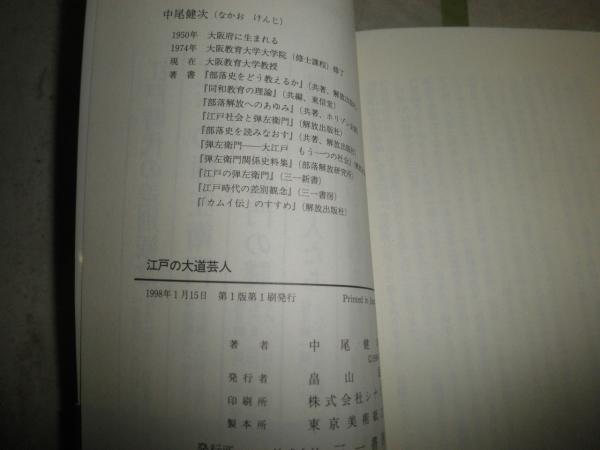 中尾健次（なかお　けんじ）
1950年　大阪府に生まれる
1974年　大阪教育大学大学院（修士課程）修了
現　在　大阪教育大学教授
著　書　『部落史をどう教えるか』（共著、解放出版社）
『同和教育の理論』（共編、東信堂）
『部落解放へのあゆみ』（共著、ホリゾン
『江戸社会と弾左衛門』（解放出版社）
『部落史を読みなおす』（共著、解放出版社）
『弾左衛門――大江戸　もう一つの社会』
『弾左衛門関係史料集』（部落解放研究所）
『江戸の弾左衛門』（三一新書）
『江戸時代の差別観念』（三一書房）
『「カムイ伝」のすすめ』（解放出版社）
江戸の大道芸人
1998年1月15日　第1版第1刷発行　Printed in
著　者　中　尾　健
発行者　畠　山
印刷所　株式会社シナ
製本所　東京美術紙
発行所　三一書